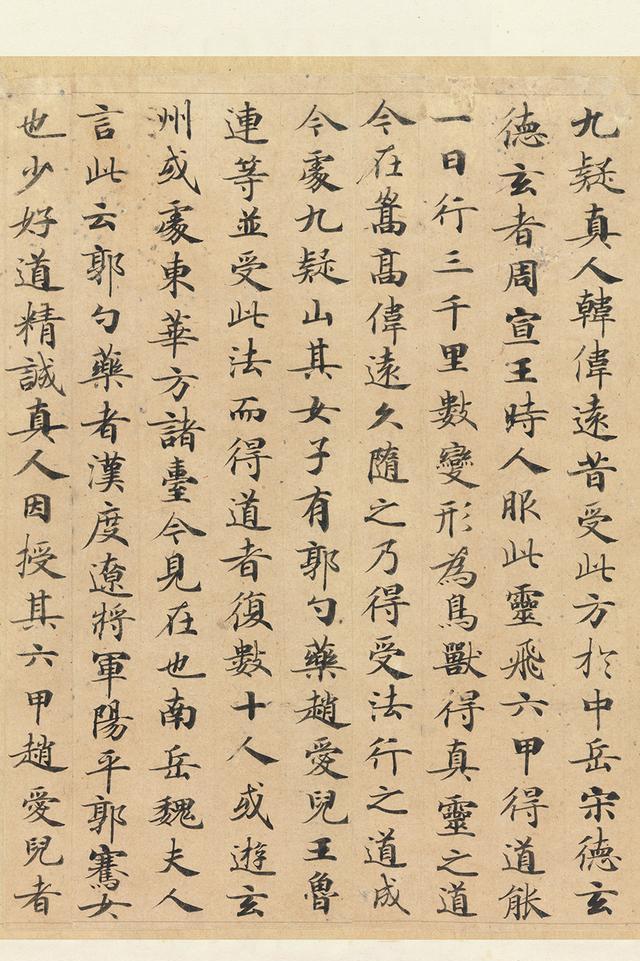 九疑真人韓偉遠昔受此方於中岳宋德玄
德玄者周宣王時人服此靈飛六甲得道能
一日行三千里數變形為鳥獸得真靈之道
今在嵩高偉遠久隨之乃得受法行之道成
今處九疑山其女子有郭勺藥趙愛兒王魯
連等並受此法而得道者復數十人或遊玄
州或處東華方諸臺今見在也南岳魏夫人
言此云郭勺藥者漢度遼將軍陽平郭騫女
也少好道精誠真人因授其六甲趙愛兒者